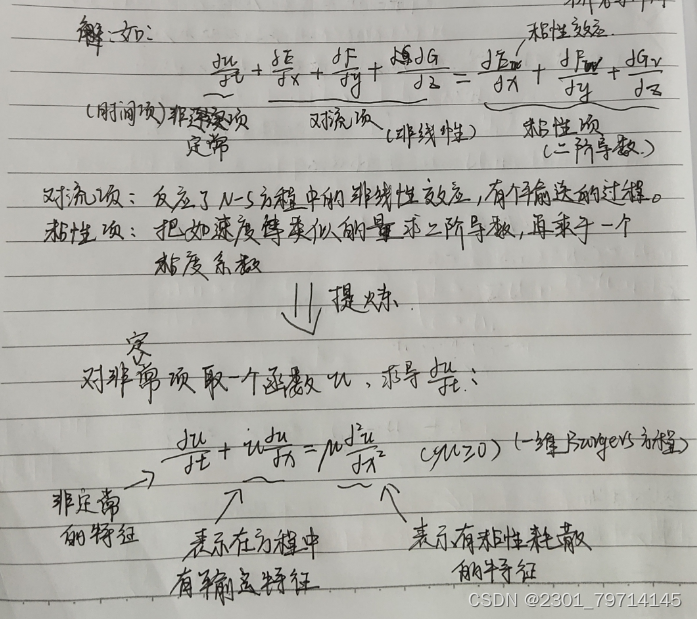 解:如:
粘性效应.
∂u/∂t + ∂E/∂x + ∂F/∂y + ∂G/∂z = ∂Ev/∂x + ∂Fv/∂y + ∂Gv/∂z
(时间项) 非定常 对流项 (非线性) 粘性项 (二阶导数.)
对流项: 反应了N-S方程中的非线性效应,有个输送的过程。
粘性项: 把如速度等类似的量求二阶导数,再乘于一个
粘度系数
提炼.
对非定常项取一个函数u、求导∂u/∂t.:
∂u/∂t + u ∂u/∂x = μ ∂²u/∂x² (μ≥0) (一维Burgers方程)
非定常
的特征
表示在方程中
有输运特征
表示有粘性耗散
的特征
CSDN @2301_79714145